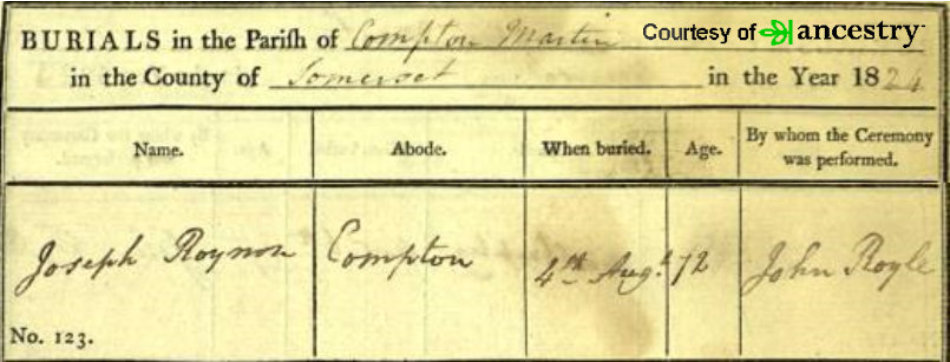 BURIALS in the Pariſh of Compton Martin
Courtesy of ancestry
in the County of Somerset in the Year 1824
Name. Abode. When buried. Age. By whom the Ceremony was performed.
Joseph Roynon Compton 4th Augt 72 John Royle
No. 123.